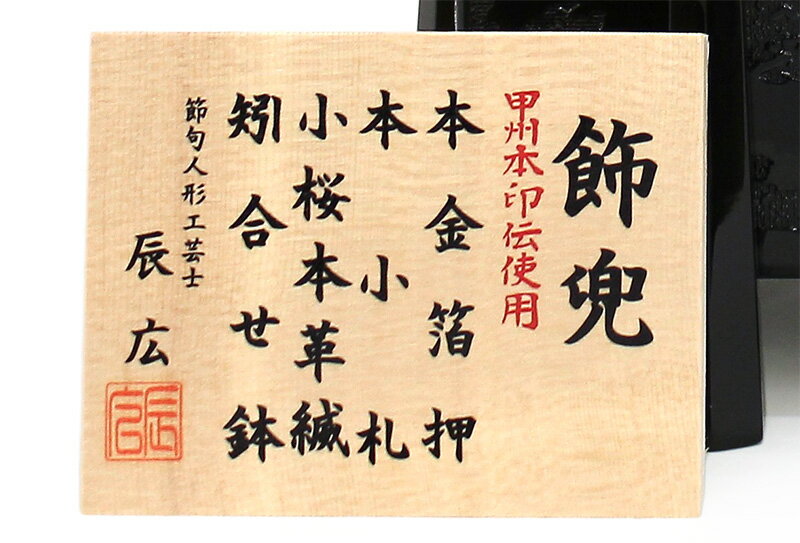 飾兜
甲州本印伝使用
本金箔押
本小札
小桜本革縅
矧合せ鉢
節句人形工芸士
辰広
辰広